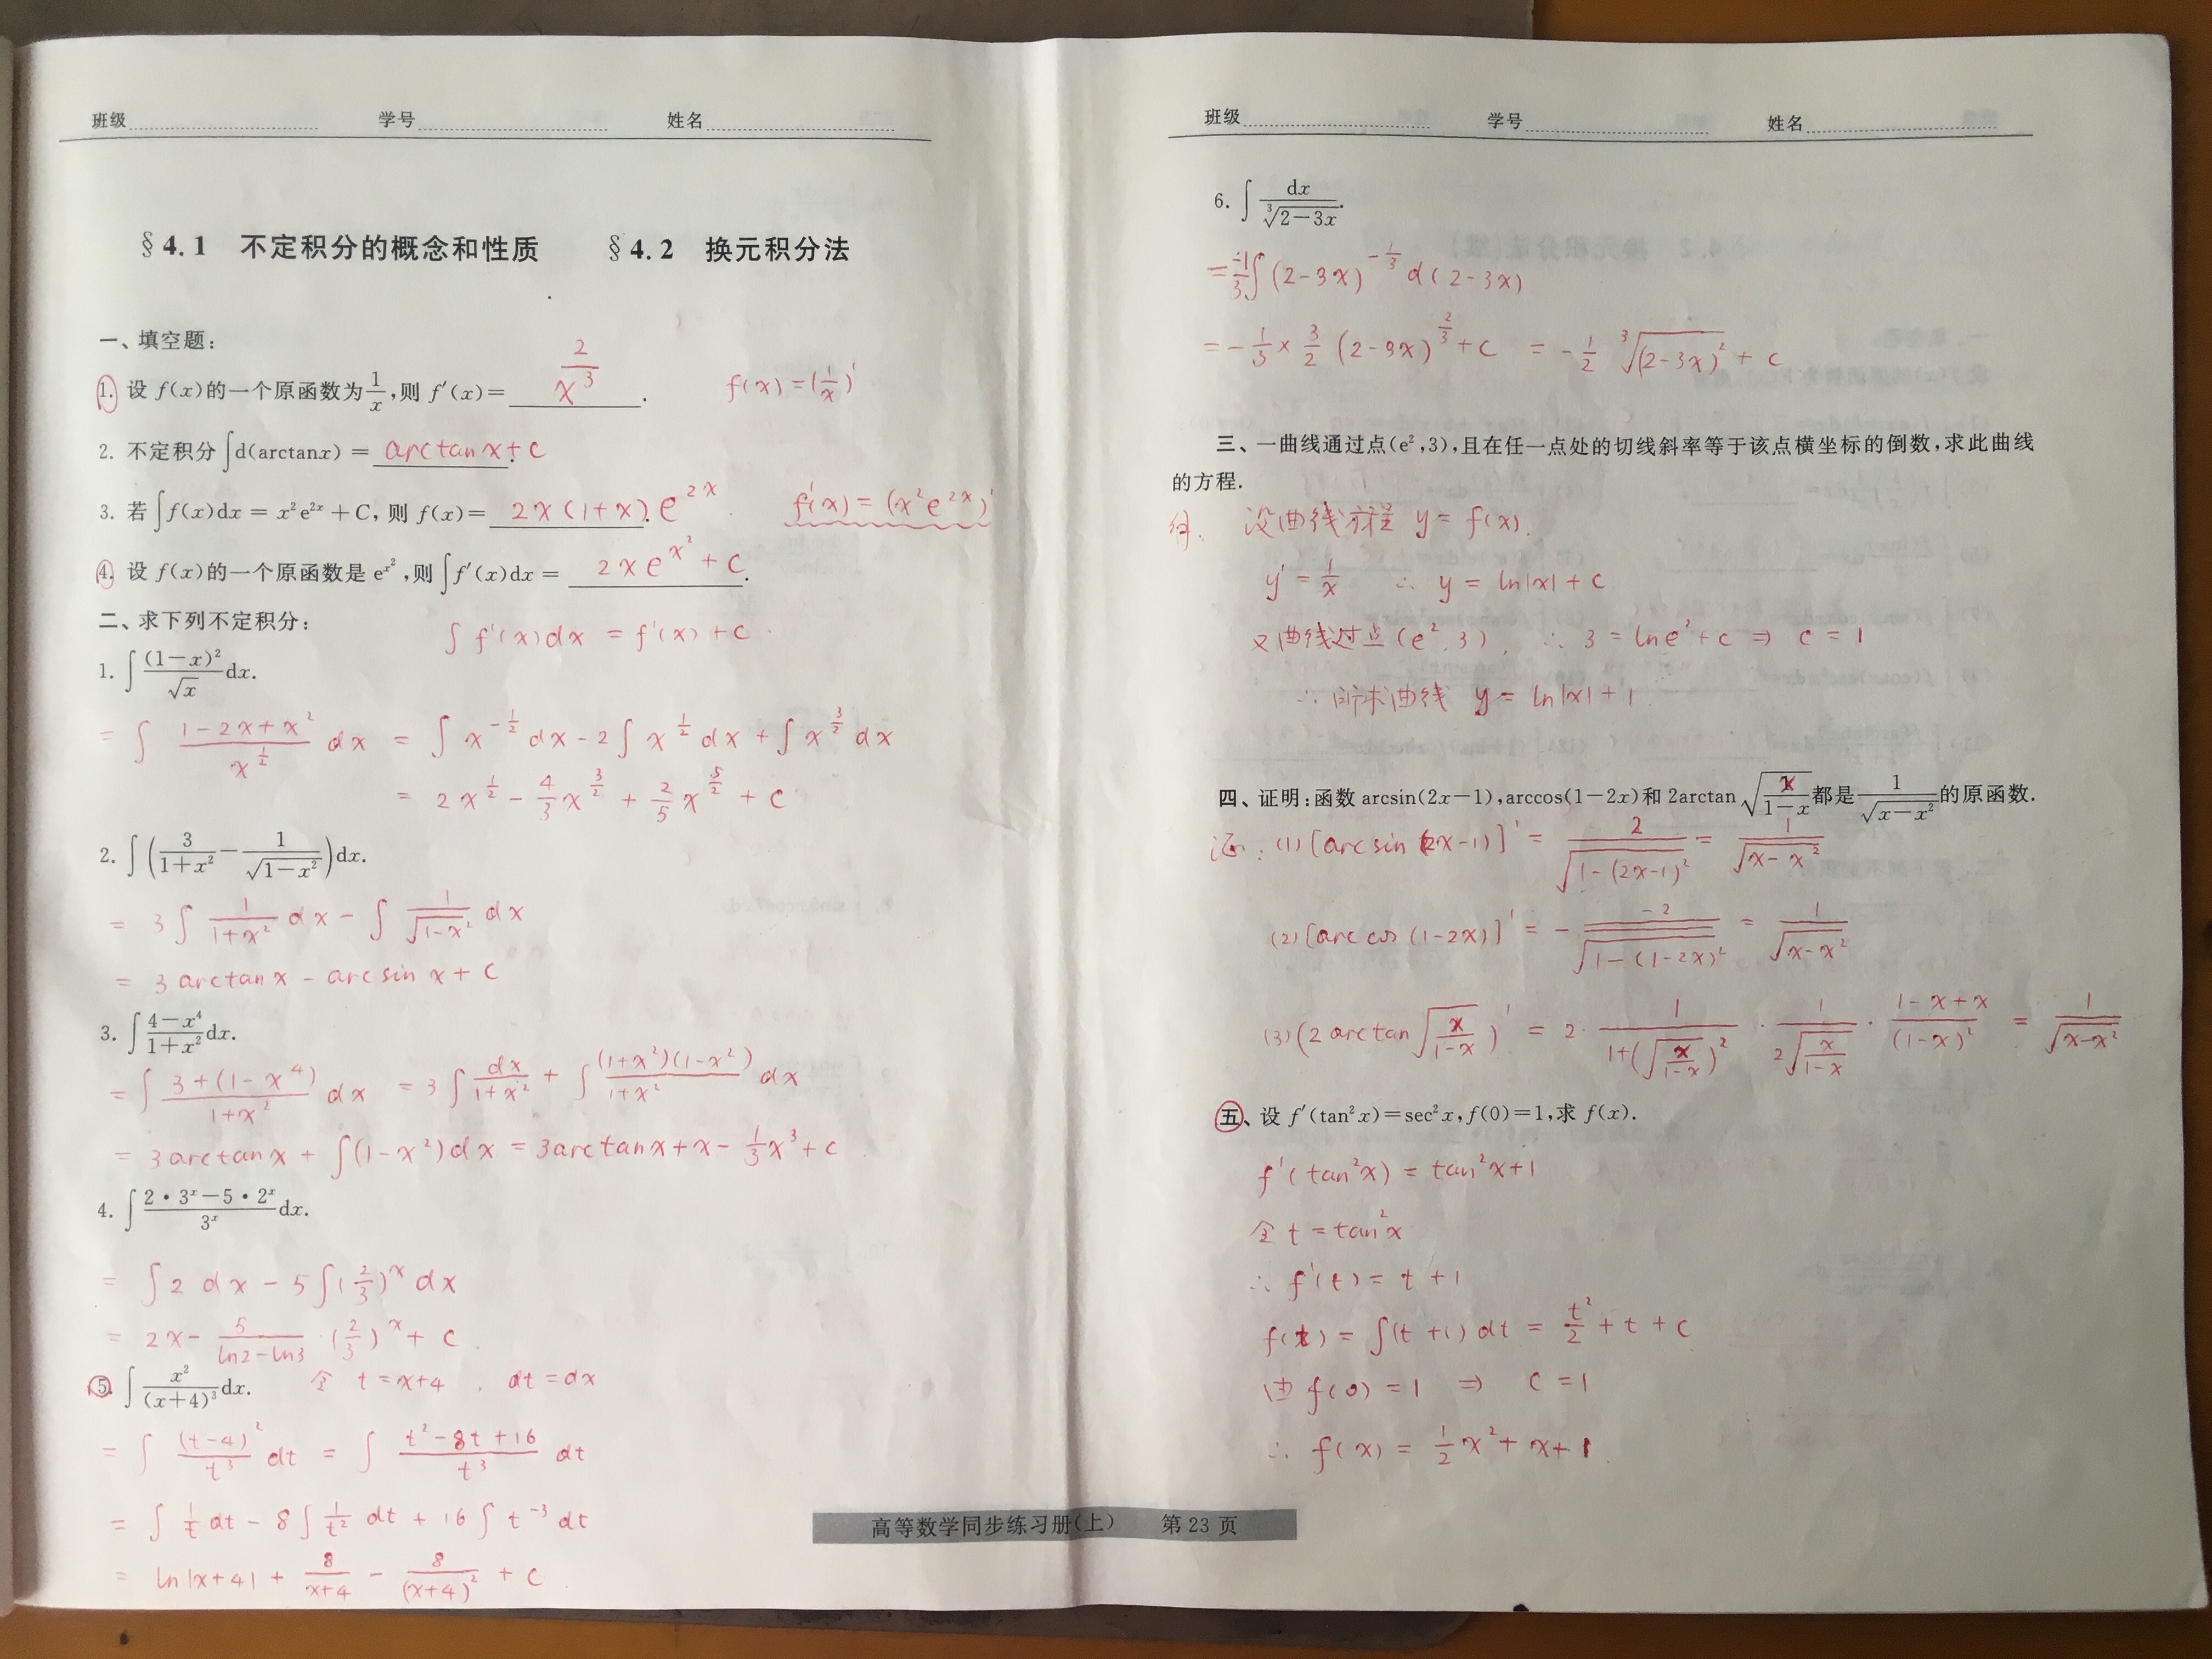 班级 学号 姓名
§4.1 不定积分的概念和性质 §4.2 换元积分法
一、填空题:
1. 设 f(x)的一个原函数为1/x,则 f′(x)= 2/x³ . f(x)=(1/x)′
2. 不定积分∫d(arctanx)= arctanx+c .
3. 若∫f(x)dx = x²e²ˣ+C, 则 f(x)= 2x(1+x)e^(2x) . f′(x)=(x²e^(2x))′
4. 设 f(x)的一个原函数是 e^(x²),则∫f′(x)dx = 2xe^(x²)+C .
二、求下列不定积分:
∫f′(x)dx = f′(x)+C
1. ∫(1−x)²/√x dx.
= ∫ (1−2x+x²)/x^(1/2) dx = ∫x^(−1/2)dx−2∫x^(1/2)dx+∫x^(3/2)dx
= 2x^(1/2) − 4/3 x^(3/2) + 2/5 x^(5/2) + C
2. ∫(3/(1+x²) − 1/√(1−x²))dx.
= 3∫ 1/(1+x²) dx − ∫ 1/√(1−x²) dx
= 3arctanx − arcsinx + C
3. ∫(4−x⁴)/(1+x²) dx.
= ∫ (3+(1−x⁴))/(1+x²) dx = 3∫ dx/(1+x²) + ∫ (1+x²)(1−x²)/(1+x²) dx
= 3arctanx + ∫(1−x²)dx = 3arctanx+x−1/3 x³+C
4. ∫(2·3ˣ−5·2ˣ)/3ˣ dx.
= ∫2 dx − 5∫(2/3)ˣ dx
= 2x − 5/(ln2−ln3) · (2/3)ˣ + C
5. ∫x²/(x+4)³ dx. 令 t=x+4, dt=dx
= ∫ (t−4)²/t³ dt = ∫ (t²−8t+16)/t³ dt
= ∫ 1/t dt − 8∫ 1/t² dt + 16∫t⁻³ dt
= ln|x+4| + 8/(x+4) − 8/(x+4)² + C
班级 学号 姓名
6. ∫dx/∛(2−3x).
= −1/3∫(2−3x)^(−1/3) d(2−3x)
= −1/3 × 3/2 (2−3x)^(2/3)+C = −1/2 ∛(2−3x)² + C
三、一曲线通过点(e²,3),且在任一点处的切线斜率等于该点横坐标的倒数,求此曲线
的方程.
解. 设曲线方程 y=f(x).
y′=1/x ∴ y=ln|x|+C
又曲线过点(e²,3), ∴ 3=lne²+C ⇒ C=1
∴ 所求曲线 y=ln|x|+1
四、证明:函数 arcsin(2x−1),arccos(1−2x)和 2arctan√(x/(1−x))都是1/√(x−x²)的原函数.
证: (1)[arcsin(2x−1)]′ = 2/√(1−(2x−1)²) = 1/√(x−x²)
(2)[arccos(1−2x)]′ = − −2/√(1−(1−2x)²) = 1/√(x−x²)
(3)(2arctan√(x/(1−x)))′ = 2· 1/(1+(√(x/(1−x)))²) · 1/(2√(x/(1−x))) · (1−x+x)/(1−x)² = 1/√(x−x²)
五、设 f′(tan²x)=sec²x,f(0)=1,求 f(x).
f′(tan²x)=tan²x+1
令 t=tan²x
∴ f′(t)=t+1
f(t)=∫(t+1)dt = t²/2+t+C
由 f(0)=1 ⇒ C=1
∴ f(x)=1/2 x²+x+1
高等数学同步练习册(上) 第 23 页